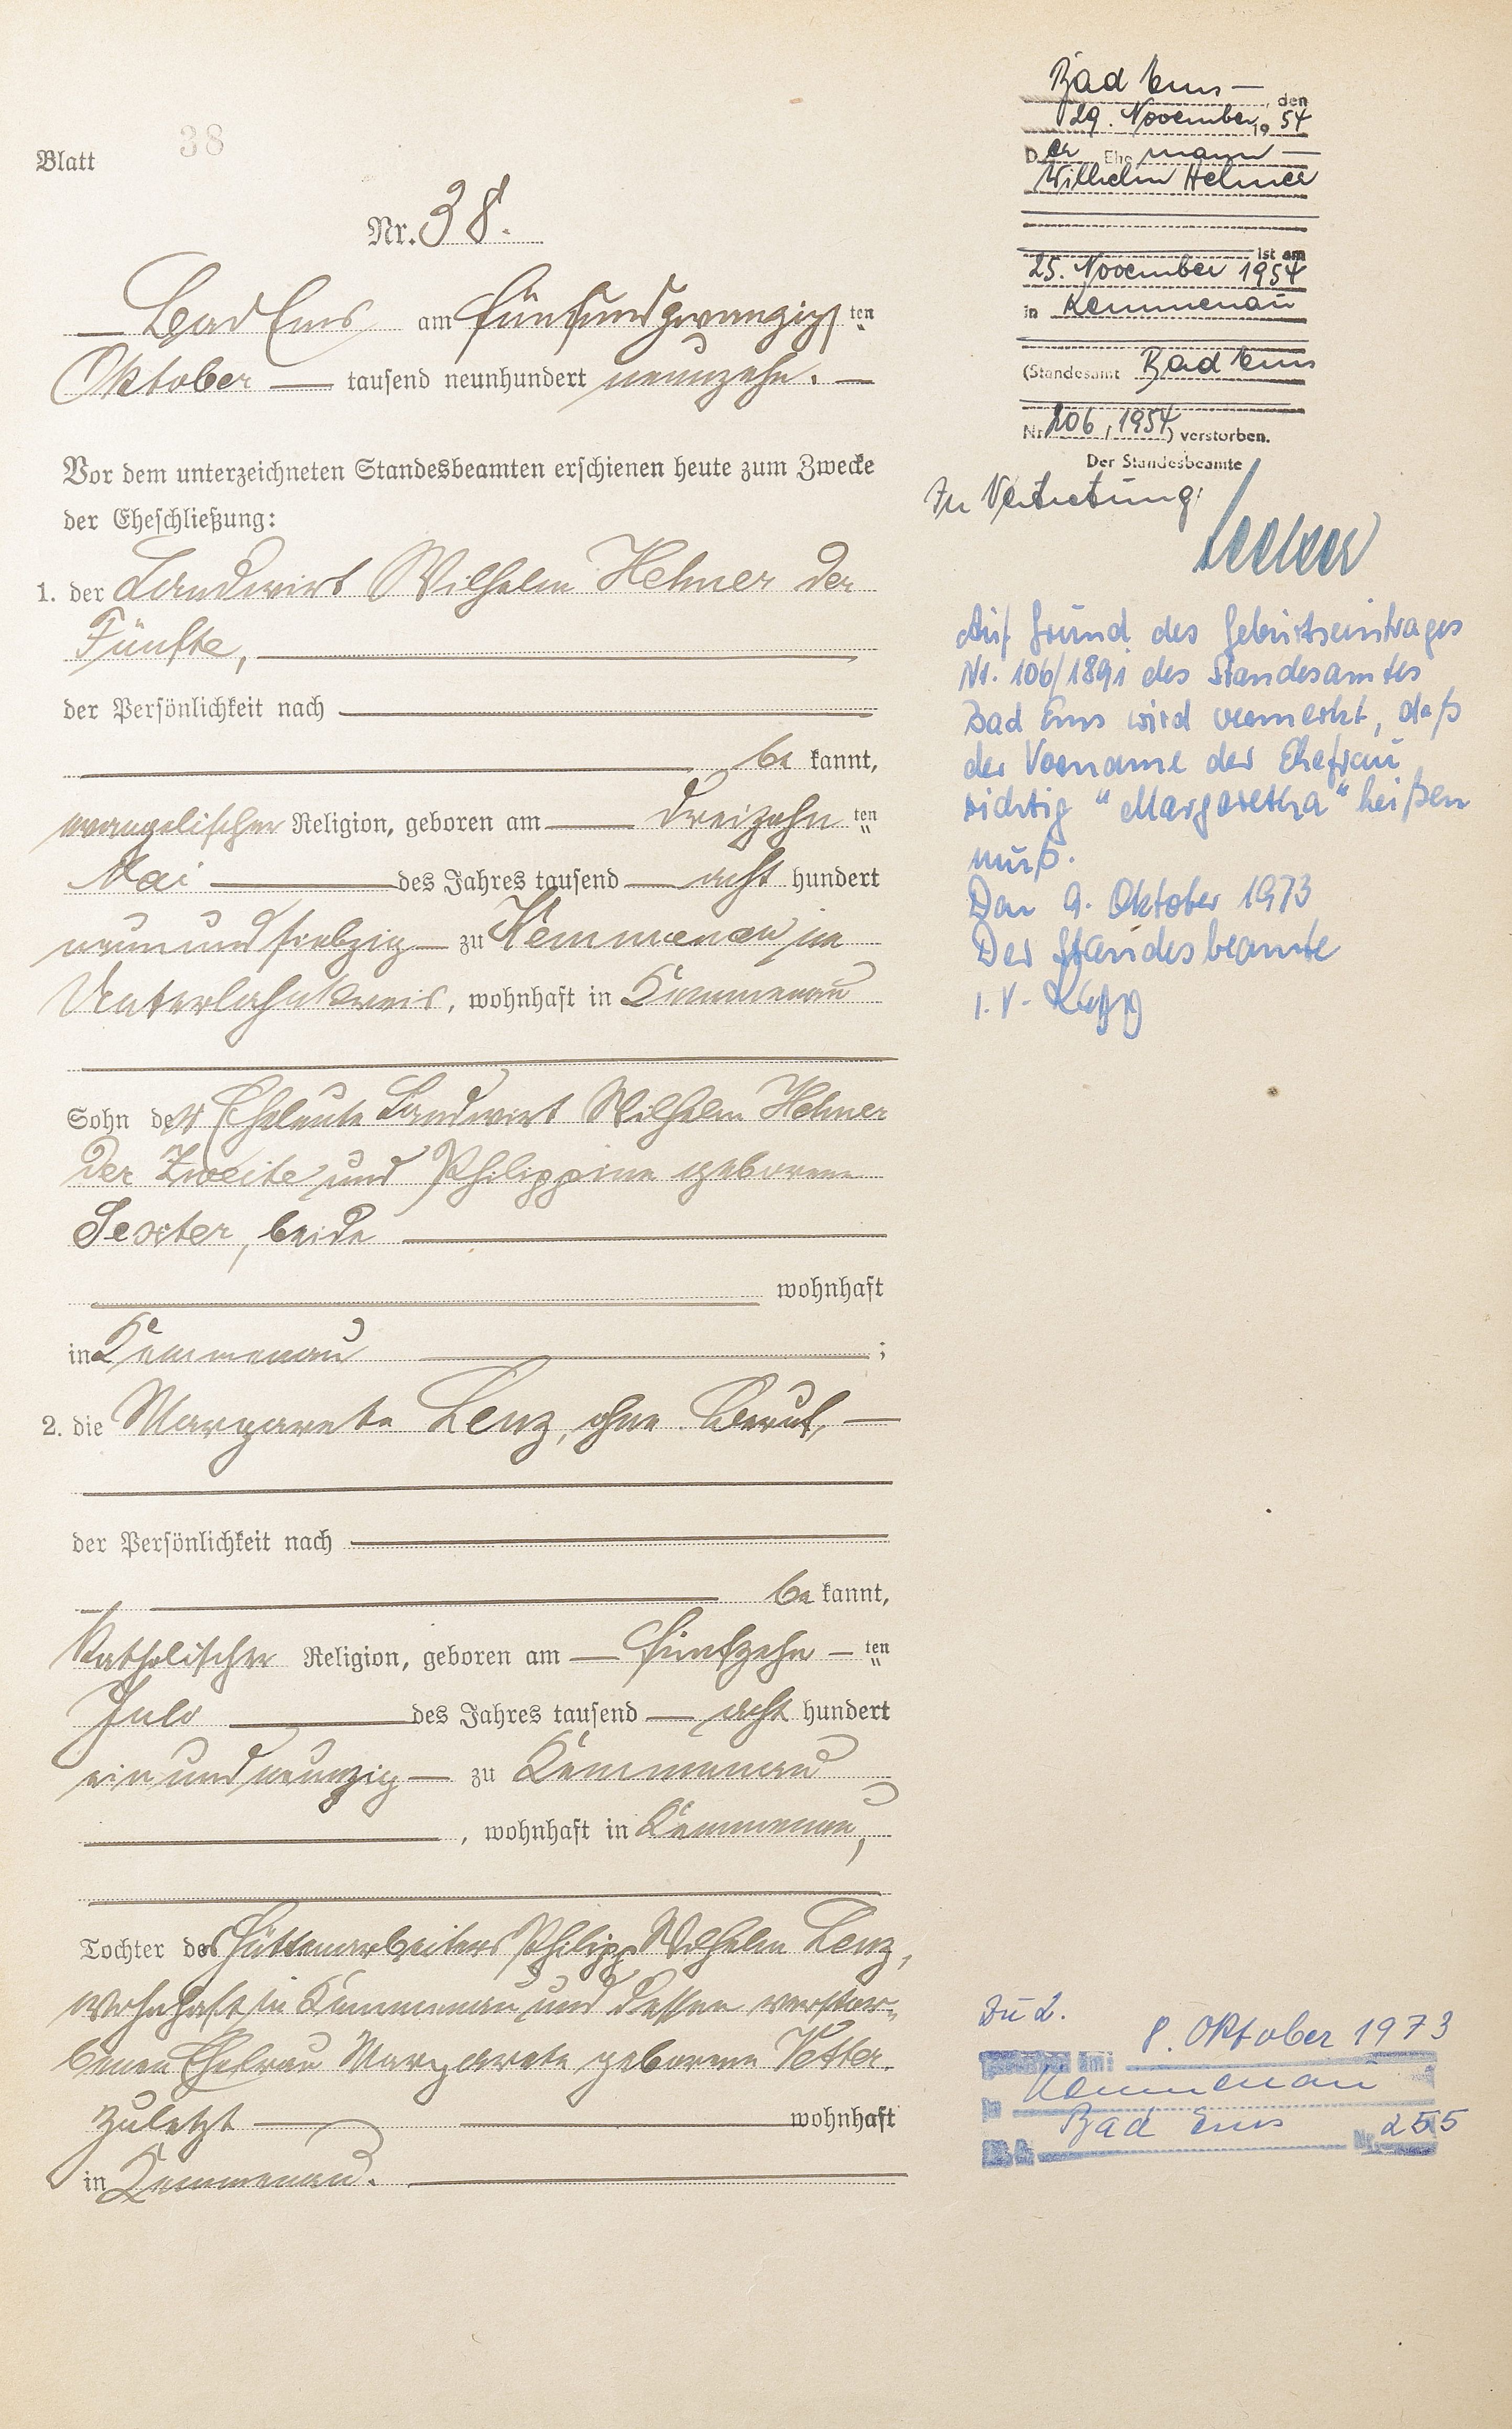 Blatt 38
Nr. 38.
Bad Ems am fünfundzwanzigsten
Oktober tausend neunhundert neunzehn.
Vor dem unterzeichneten Standesbeamten erschienen heute zum Zwecke
der Eheschließung:
1. der Landwirt Wilhelm Hehner der
Fünfte,
der Persönlichkeit nach
be kannt,
evangelischer Religion, geboren am dreizehnten
Mai des Jahres tausend acht hundert
neunundsiebzig zu Kemmenau im
Unterlahnkreis, wohnhaft in Kemmenau
Sohn der Eheleute Landwirt Wilhelm Hehner
der Zweite und Philippine geborene
Sexter, beide
wohnhaft
in Kemmenau ;
2. die Margarete Lenz, ohne Beruf,
der Persönlichkeit nach
be kannt,
katholischer Religion, geboren am fünfzehnten
Juli des Jahres tausend acht hundert
einundneunzig zu Kemmenau
, wohnhaft in Kemmenau,
Tochter des Hüttenarbeiters Philipp Wilhelm Lenz,
wohnhaft in Kemmenau und dessen verstor-
benen Ehefrau Margarete geborene Vetter
zuletzt wohnhaft
in Kemmenau.
Bad Ems, den
29. November 1954
Der Ehemann
Wilhelm Hehner
ist am
25. November 1954
in Kemmenau
(Standesamt Bad Ems
Nr 206, 1954) verstorben.
Der Standesbeamte
In Vertretung:
Auf Grund des Geburtseintrages
Nr. 106/1891 des Standesamtes
Bad Ems wird vermerkt, daß
der Vorname der Ehefrau
richtig "Margaretha" heißen
muß.
Den 9. Oktober 1973
Der Standesbeamte
i.V.
Zu 2.
am: 8. Oktober 1973
in Kemmenau
Bad Ems Nr. 255